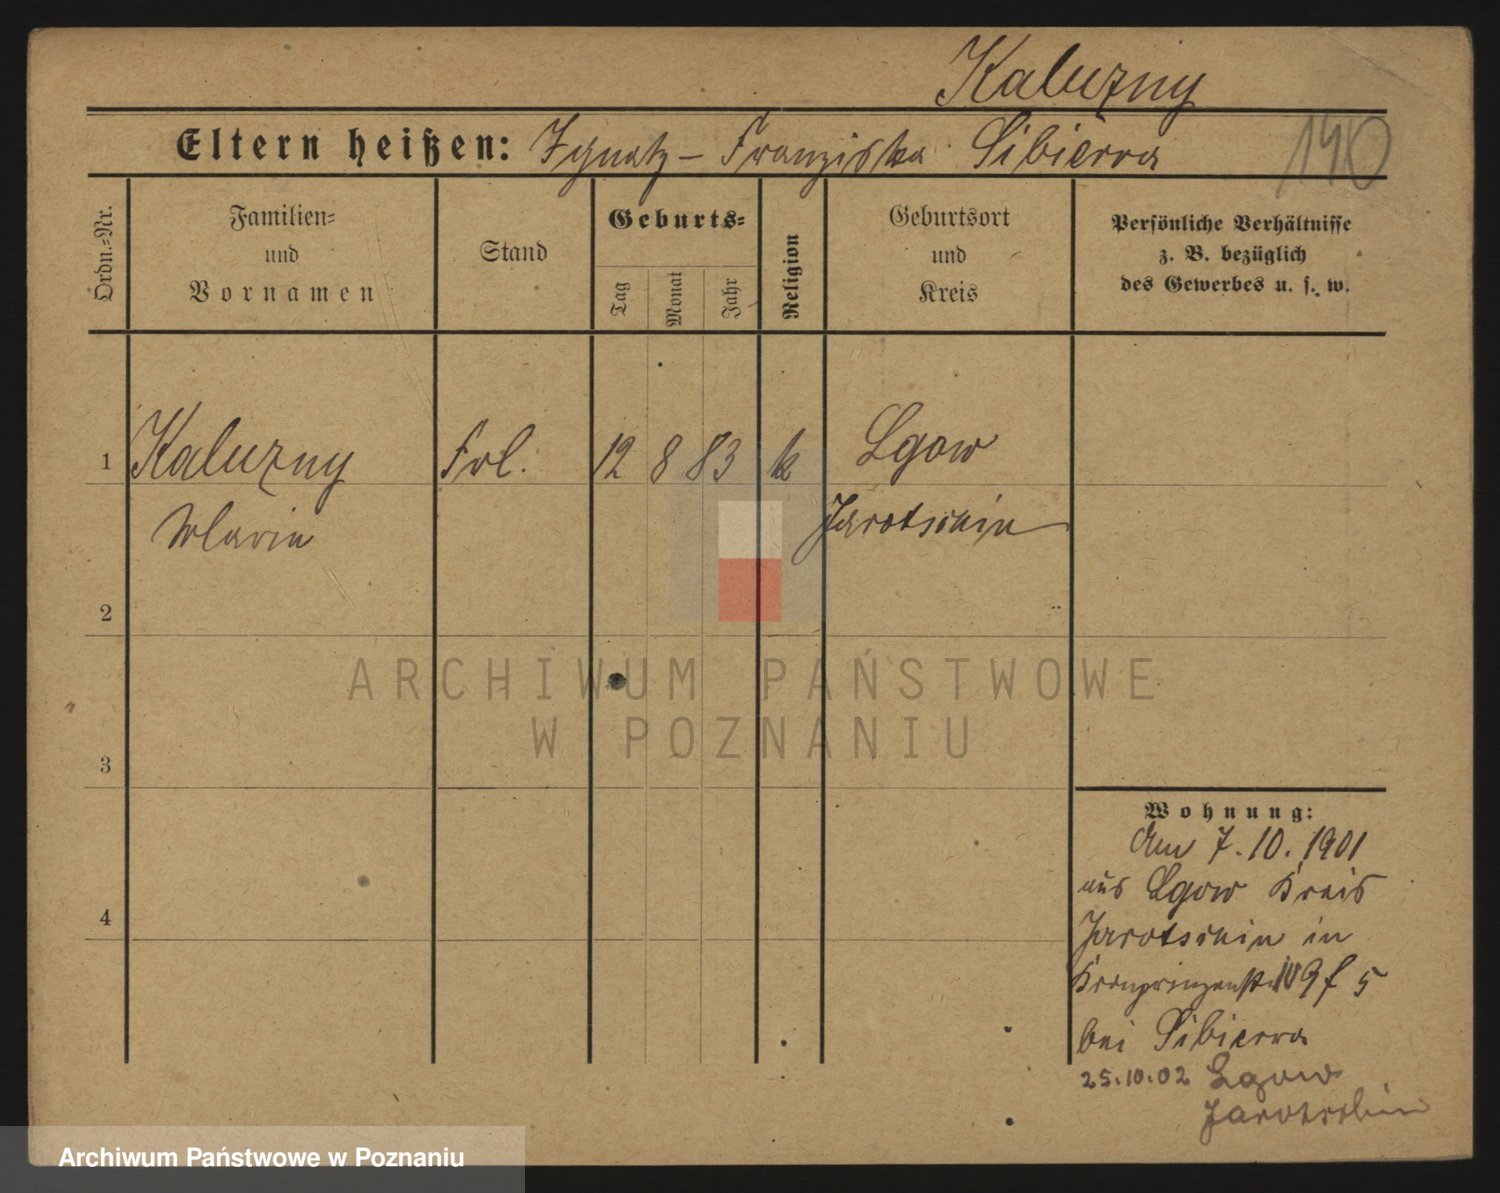 Kaluzny
Eltern heißen: Ignatz - Franziska Sibierra
140
Ordn.=Nr.
Familien=
und
Vornamen
Stand
Geburts=
Tag
Monat
Jahr
Religion
Geburtsort
und
Kreis
Persönliche Verhältnisse
z. B. bezüglich
des Gewerbes u. s. w.
1 Kaluzny Frl. 12 8 83 k Lgow
Marie Jarotschin
2
ARCHIWUM PAŃSTWOWE
W POZNANIU
3
Wohnung:
Am 7.10.1901
aus Lgow Kreis
4
Jarotschin in
Kronprinzenstr 109 f 5
bei Sibierra
25.10.02 Lgow
Jarotschin
Archiwum Państwowe w Poznaniu